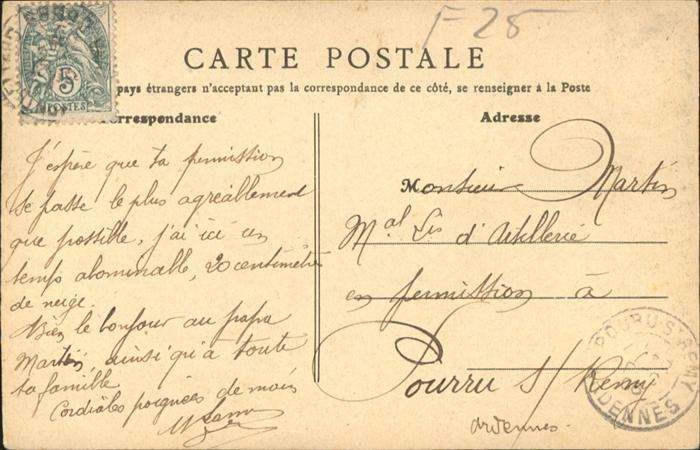 F-25
CARTE POSTALE
pays étrangers n'acceptant pas la correspondance de ce côté, se renseigner à la Poste
Correspondance
J'espère que ta permission
se passe le plus agréablement
que possible, j'ai ici un
temps abominable, 20 centimètres
de neige.
Bien le bonjour au papa
Martin ainsi qu'à toute
ta famille
Cordiales poignées de main
Adresse
Monsieur Martin
Mal Lis d'Artillerie
en permission à
Pourru s/ Remy
Ardennes
5
POSTES
POURU-ST-REMY
ARDENNES